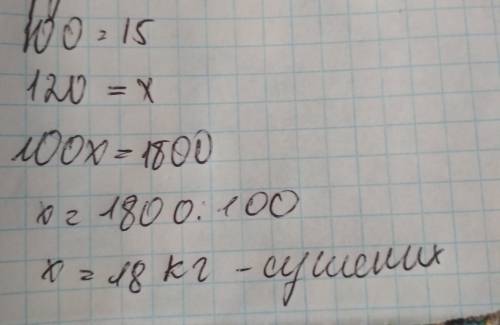 100 = 15
120 = x
100x = 1800
x = 1800 : 100
x = 18 кг - сушених